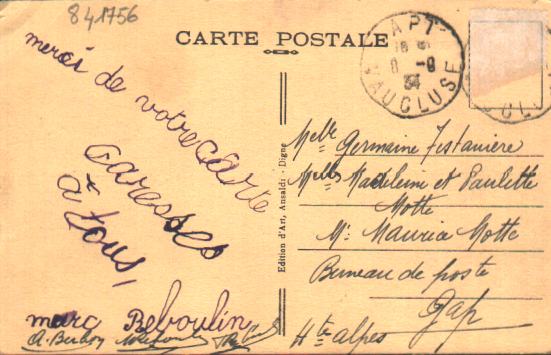 841756
CARTE POSTALE
APT
18
8 -9
34
VAUCLUSE
merci de votre carte
caresses
à tous,
marc Beboulin
Edition d'Art, Ansaldi - Digne
Melle Germaine Testanière
Melles Madeleine et Paulette
Motte
Mr Maurice Motte
Bureau de poste
Gap
Htes alpes